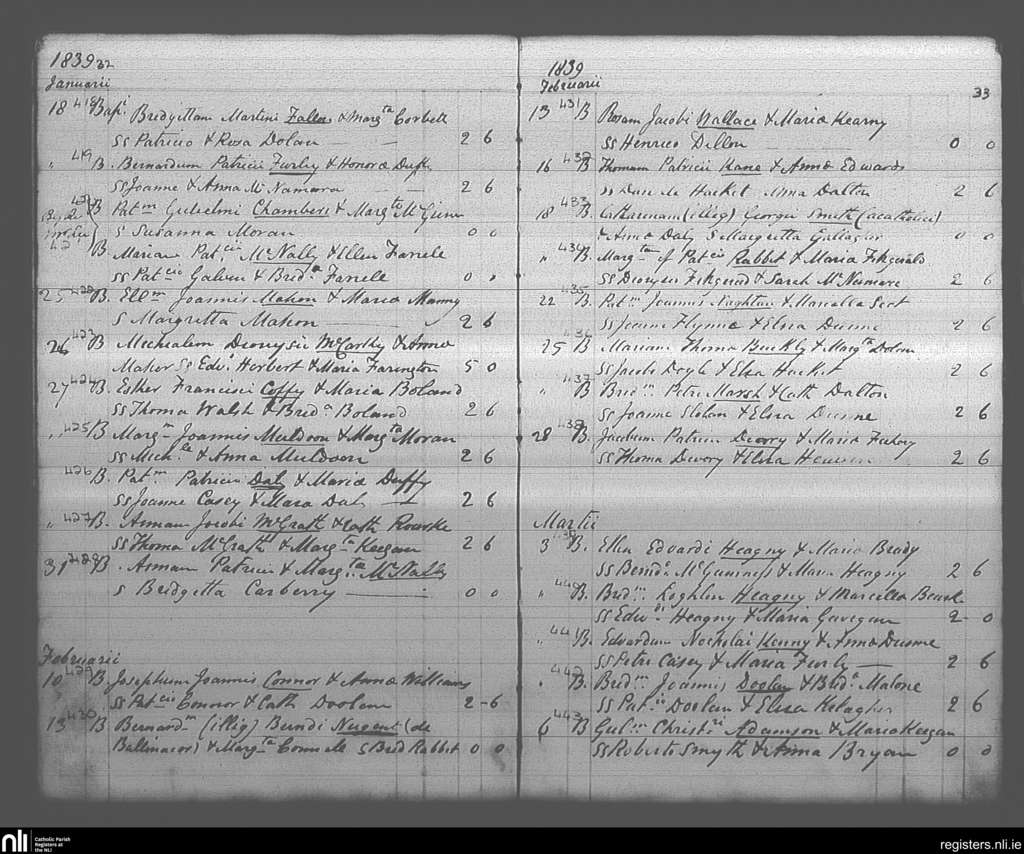 1839 32
Januarii
18 418 Bapi Bridgittam Martini Fallon & Margta Corbett
SS Patricio & Rosa Dolan 2 6
" 419 B. Bernardum Patricii Furly & Honoræ Duffy
SS Joanne & Anna McNamara 2 6
B Patm Gulielmi Chambers & Margta McGinn
S Susanna Moran 0 0
B Mariam Patcii McNally & Ellen Farrele
SS Patcio Galvin & Brida Farrele 0 "
25 422 B. Ellm Joannis Mahon & Maria Manny
S Margretta Mahon 2 6
26 423 B Michaelem Dionysii McCarthy & Annæ
Maher SS Edo Herbert & Maria Farington 5 0
27 424 B. Esther Francisci Coffy & Maria Boland
SS Thoma Walsh & Brida Boland 2 6
" 425 B Margm Joannis Muldoon & Margta Moran
SS Michle & Anna Muldoon 2 6
426 B. Patm Patricii Daly & Mariæ Duffy
SS Joanne Casey & Mara Daly 2 6
" 427 B. Annam Jacobi McGrath & Cath Rourke
SS Thoma McGrath & Margta Keegan 2 6
31 428 B. Annam Patricii & Margta McNally
S Bridgetta Carberry 0 0
Februarii
10 429 B. Josephum Joannis Connor & Annæ Williams
SS Patcio Connor & Cath Doolan 2 - 6
13 430 B Bernardm (illig) Berndi Nugent (de
Ballinacor) & Margta Connele S Brid Rabbit 0 0
1839
Februarii 33
13 431 B Rosam Jacobi Wallace & Mariæ Kearny
SS Henrico Dillon 0 0
16 432 B Thomam Patricii Kane & Annæ Edwards
SS Hacket Anna Dalton 2 6
18 433 B. Catharinam (illig) Georgii Smith (acatholici)
& Annæ Daly S Margretta Gallagher 0 0
" 434 B. Margtam of Patcii Rabbit & Maria Fitzgerald
SS Dionysio Fitzgerald & Sarah McNamara 2 6
22 435 B. Patm Joannis Naghten & Marcella
SS Joanne Flynn & Eliza Dunne 2 6
25 436 B Mariam Thoma Buckly & Margta Dolan
SS Jacobo Doyle & Elsa Hacket 2 6
" 437 B Bridm Petri Marsh & Cath Dalton
SS Joanne & Eliza Dunne 2 6
28 438 B. Jacobum Patricii Devory & Maria
SS Thoma Devory & Eliza 2 6
Martii
3 439 B. Ellen Edvardi Heagny & Maria Brady
SS Bernido McGuinness & Maria Heagny 2 6
" 440 B. Bridm Loghlin Heagny & Marcella
SS Edwdo Heagny & Maria Gavegan 2 0
" 441 B. Edvardum Nocholai Kenny & Annæ Dunne
SS Petro Casey & Maria Furly 2 6
" 442 B. Bridm Joannis Doolan & Brida Malone
SS Patcio Doolan & Elisa Kelagher 2 6
6 443 B Gulm Christri Adamson & Maria Keegan
SS Roberto Smyth & Anna Bryan 0 0
nli Catholic Parish
Registers at
the NLI
registers.nli.ie